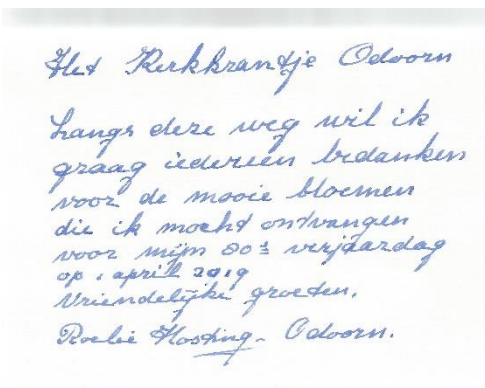 Het Kerkkrantje Odoorn
Langs deze weg wil ik
graag iedereen bedanken
voor de mooie bloemen
die ik mocht ontvangen
voor mijn 80e verjaardag
op 1 april 2019
Vriendelijke groeten,
Roelie Hosting - Odoorn.